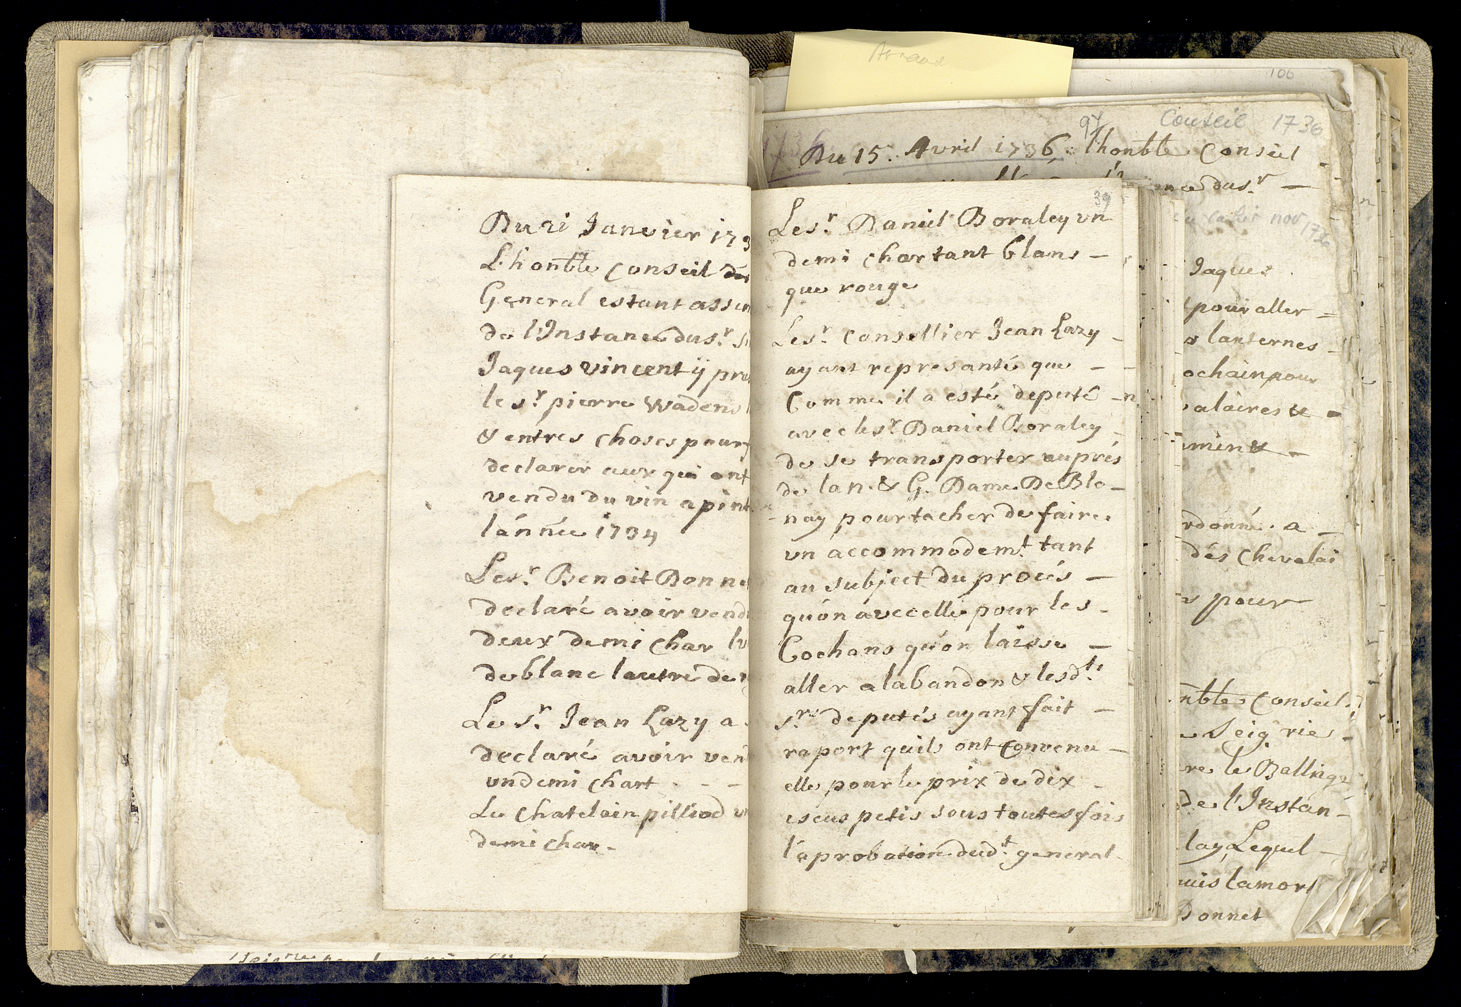 Du 21 Janvier 173
L'honble Conseil
General estant assem
de l'Instance du Sr.
Jaques Vincent ÿ pre
le Sr. pierre Wadens
& entres choses pour
declarer ceux qui ont
vendu du vin a pint
l'année 1734
Le Sr. Benoit Bonne
declaré avoir vend
deux demi Char lu
de blanc lautre de
Le Sr. Jean Lazy a
declaré avoir ven
un demi Chart - -
Le Chatelain pilliod u
demi Char -
39
Le Sr. Daniel Boraley un
demi char tant blanc -
que rouge
Le Sr. Consellier Jean Lazy -
ayant representé que -
Comme il a esté deputé -
avec le Sr. Daniel Boraley -
de se transporter aupres
de la n. & G. Dame De Blo -
nay pour tacher de faire
un accommodemt. tant
au subject du procés -
qu'on a vec elle pour les -
Cochons qu'on laisse -
aller a labandon & lesdts
Srs. deputés ayant fait -
raport quils ont convenu -
elle pour le prix de dix -
escus petis sous toutes fois
l'aprobation dudt. general -
Arnaud
106
97
Conseil 1736
1736
Du 15. Avril 1736: lhonble Conseil -
ence du Sr. -
cahier nov 1736
Jaques
pour aller =
lanternes -
ochain pour
alaires & -
ement -
rdonné a -
des Chevalai
pour
nble Conseil
Seigries -
re le Ballinge
de l'Instan-
lay Lequl -
uis la mort
Bonnet